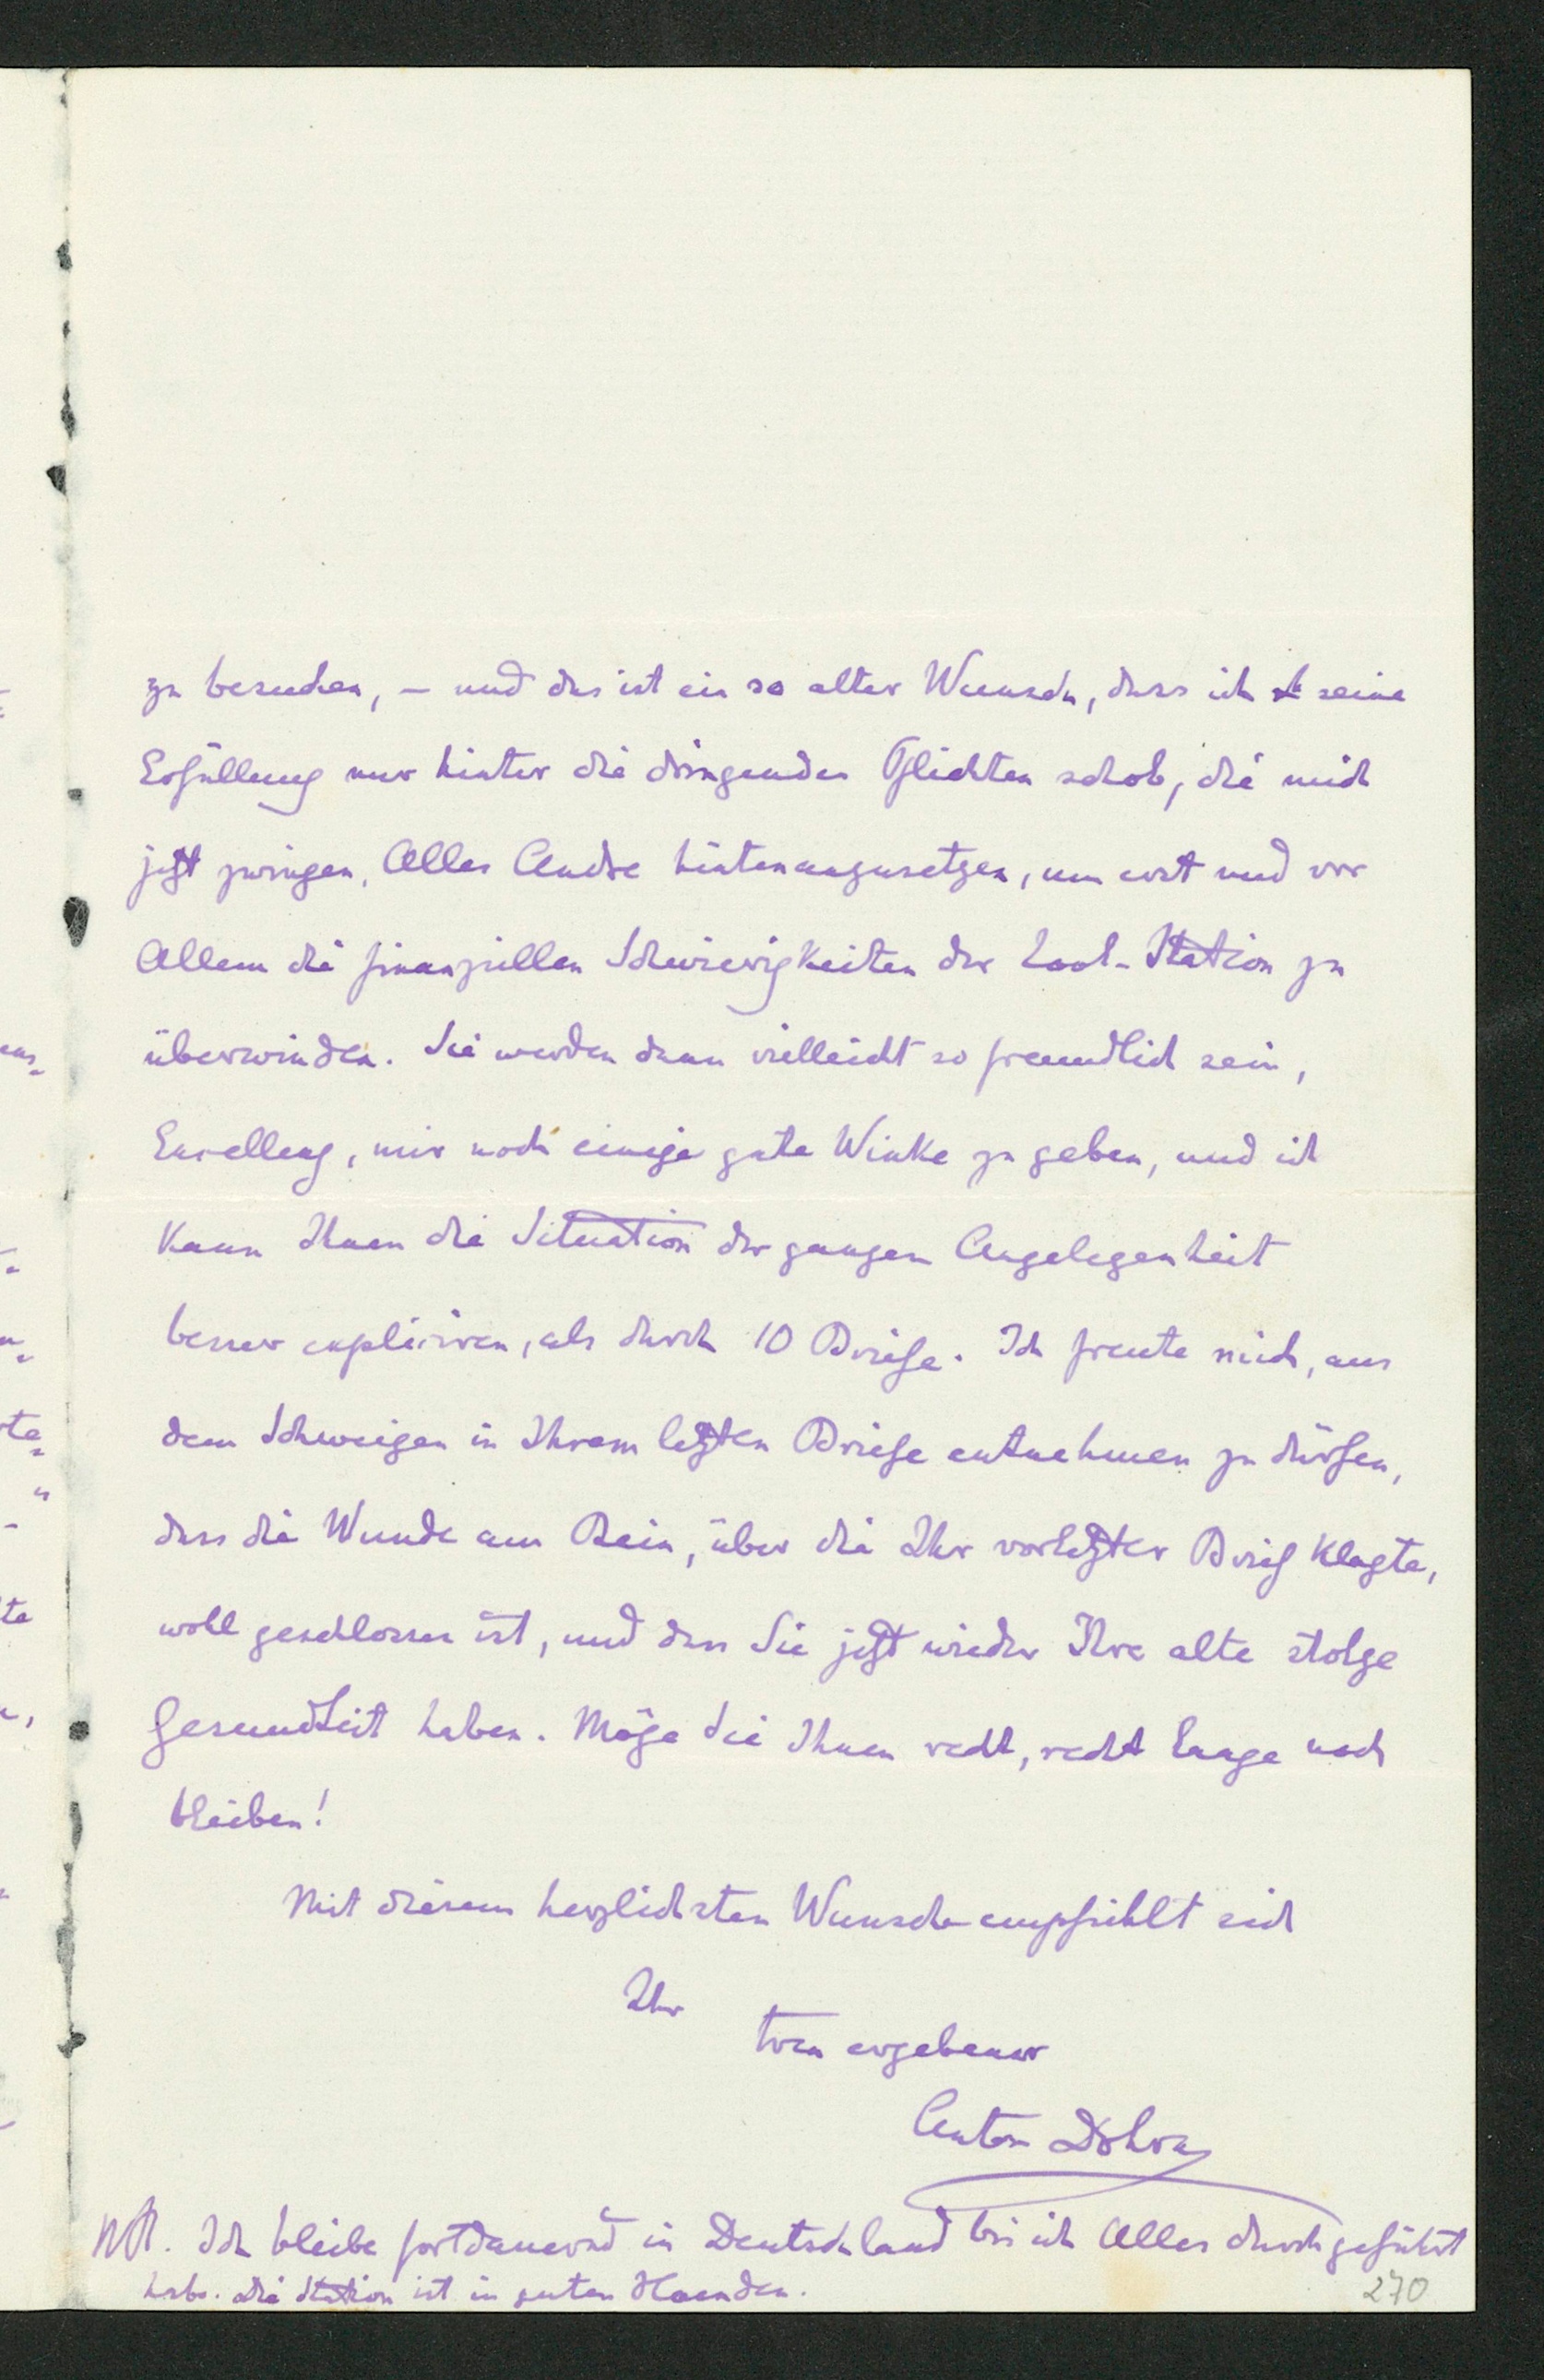 zu besuchen, – und das ist ein so alter Wunsch, dass ich seine
Erfüllung nur hinter die dringenden Pflichten schob, die mich
jetzt zwingen, Alles Andre hintenanzusetzen, um erst und vor
Allem die finanziellen Schwierigkeiten der Zool-Station zu
überwinden. Sie werden dann vielleicht so freundlich sein,
Excellenz, mir noch einige gute Winke zu geben, und ich
kann Ihnen die Situation der ganzen Angelegenheit
besser expliciren, als durch 10 Briefe. Ich freute mich, aus
dem Schweigen in Ihrem letzten Briefe entnehmen zu dürfen,
dass die Wunde am Bein, über die Ihr vorletzter Brief klagte,
wohl geschlossen ist, und dass Sie jetzt wieder Ihre alte stolze
Gesundheit haben. Möge Sie Ihnen recht, recht lange noch
bleiben!
Mit diesem herzlichsten Wunsche empfiehlt sich
Ihr
treu ergebener
Anton Dohrn
NB. Ich bleibe fortdauernd in Deutschland bis ich Alles durchgeführt
habe. Die Station ist in guten Haenden.
270